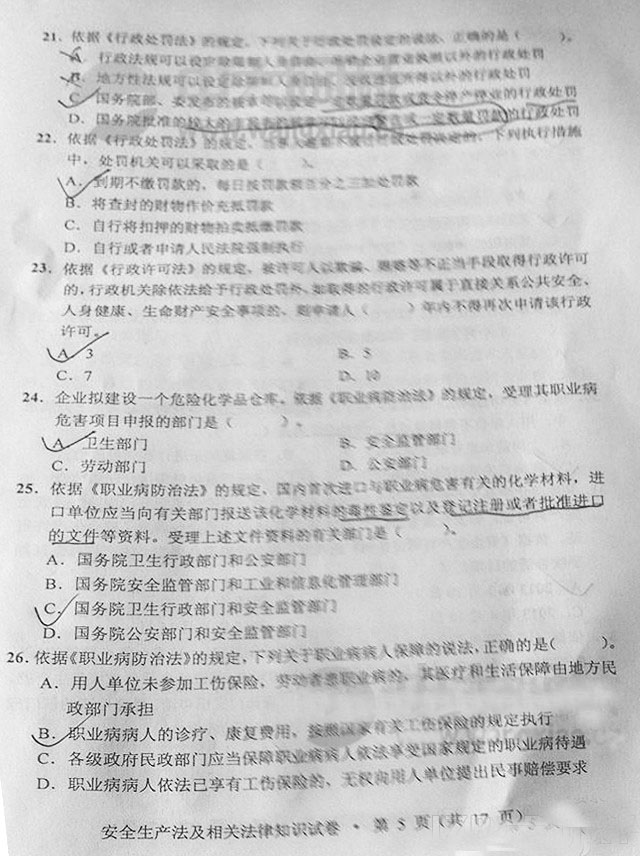 21. 依据《行政处罚法》的规定，下列关于行政处罚设定的说法，正确的是（　　）。
A. 行政法规可以设定除限制人身自由、吊销企业营业执照以外的行政处罚
B. 地方性法规可以设定除限制人身自由、没收违法所得以外的行政处罚
C. 国务院部、委发布的规章可以设定一定数量罚款或责令停产停业的行政处罚
D. 国务院批准的较大的市 一定数量罚款的行政处罚
22. 依据《行政处罚法》的规定，当事人逾期不履行行政处罚决定的，下列执行措施
中，处罚机关可以采取的是（　　）。
A. 到期不缴罚款的，每日按罚款数额百分之三加处罚款
B. 将查封的财物作价充抵罚款
C. 自行将扣押的财物拍卖抵缴罚款
D. 自行或者申请人民法院强制执行
23. 依据《行政许可法》的规定，被许可人以欺骗、贿赂等不正当手段取得行政许可
的，行政机关除依法给予行政处罚外，如取得的行政许可属于直接关系公共安全、
人身健康、生命财产安全事项的，则申请人（　　）年内不得再次申请该行政
许可。
A. 3 B. 5
C. 7 D. 10
24. 企业拟建设一个危险化学品仓库。依据《职业病防治法》的规定，受理其职业病
危害项目申报的部门是（　　）。
A. 卫生部门 B. 安全监管部门
C. 劳动部门 D. 公安部门
25. 依据《职业病防治法》的规定，国内首次进口与职业病危害有关的化学材料，进
口单位应当向有关部门报送该化学材料的毒性鉴定以及登记注册或者批准进口
的文件等资料。受理上述文件资料的有关部门是（　　）。
A. 国务院卫生行政部门和公安部门
B. 国务院安全监管部门和工业和信息化管理部门
C. 国务院卫生行政部门和安全监管部门
D. 国务院公安部门和安全监管部门
26. 依据《职业病防治法》的规定，下列关于职业病病人保障的说法，正确的是（　　）。
A. 用人单位未参加工伤保险，劳动者患职业病的，其医疗和生活保障由地方民
政部门承担
B. 职业病病人的诊疗、康复费用，按照国家有关工伤保险的规定执行
C. 各级政府民政部门应当保障职业病病人依法享受国家规定的职业病待遇
D. 职业病病人依法已享有工伤保险的，无权向用人单位提出民事赔偿要求
安全生产法及相关法律知识试卷 · 第 5 页（共 17 页）